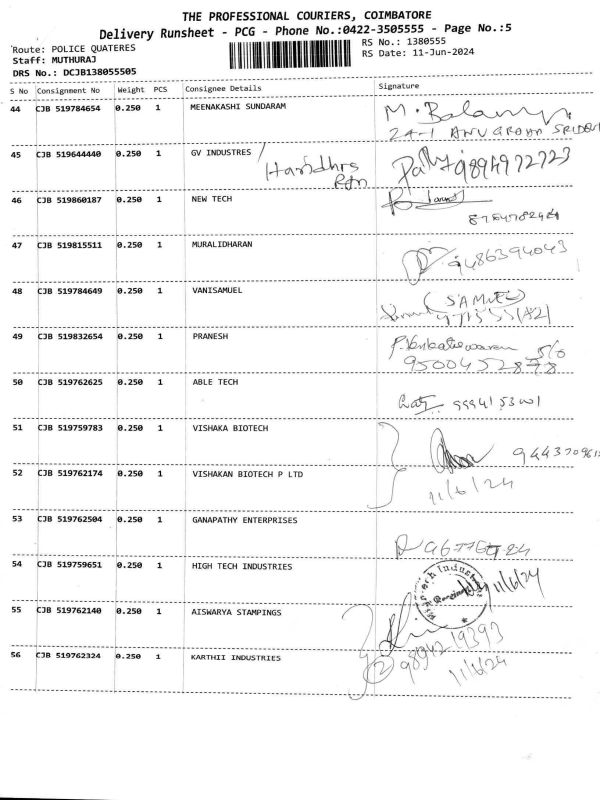 THE PROFESSIONAL COURIERS, COIMBATORE
Delivery Runsheet - PCG - Phone No.:0422-3505555 - Page No.:5
Route: POLICE QUATERES
RS No.: 1380555
Staff: MUTHURAJ
RS Date: 11-Jun-2024
DRS No.: DCJB138055505
S No Consignment No Weight PCS Consignee Details Signature
44 CJB 519784654 0.250 1 MEENAKASHI SUNDARAM
45 CJB 519644440 0.250 1 GV INDUSTRES 9894972723
46 CJB 519860187 0.250 1 NEW TECH
47 CJB 519815511 0.250 1 MURALIDHARAN 9486394043
48 CJB 519784649 0.250 1 VANISAMUEL (SAMUEL)
49 CJB 519832654 0.250 1 PRANESH P. Venkateswaran S/o
9500452878
50 CJB 519762625 0.250 1 ABLE TECH
51 CJB 519759783 0.250 1 VISHAKA BIOTECH
52 CJB 519762174 0.250 1 VISHAKAN BIOTECH P LTD 11/6/24
53 CJB 519762504 0.250 1 GANAPATHY ENTERPRISES
54 CJB 519759651 0.250 1 HIGH TECH INDUSTRIES 11/6/24
55 CJB 519762140 0.250 1 AISWARYA STAMPINGS
56 CJB 519762324 0.250 1 KARTHII INDUSTRIES 2 9894219393
11/6/24